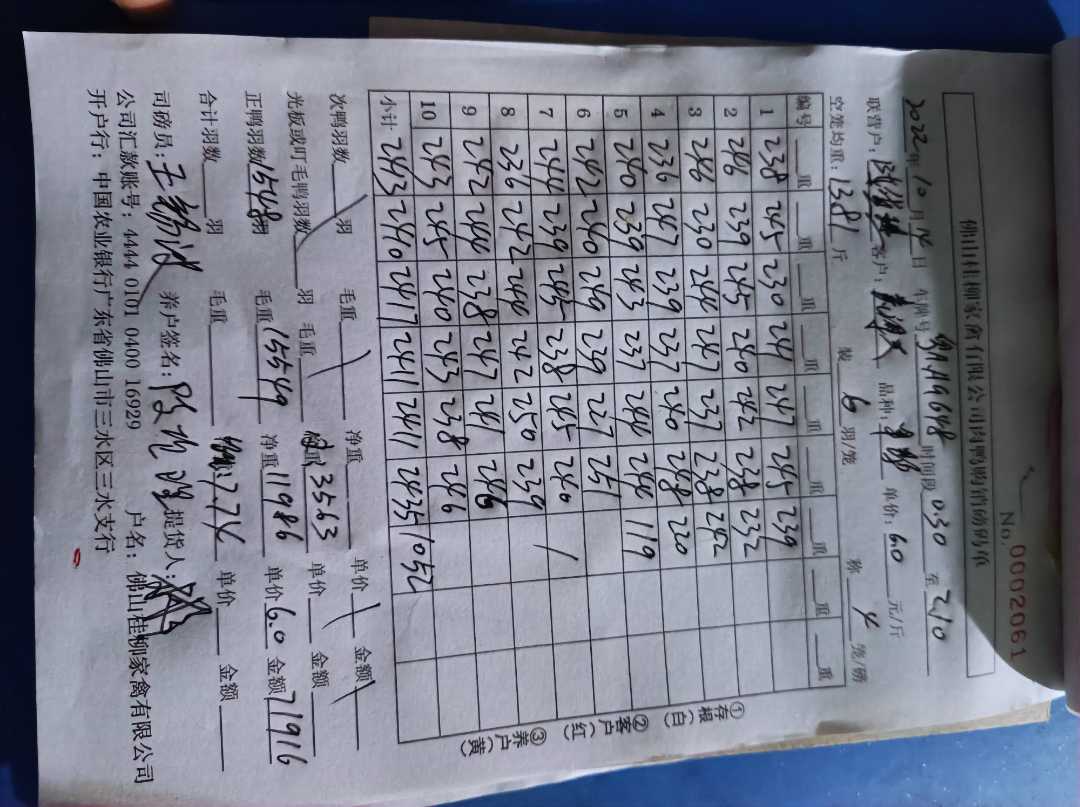 佛山桂柳家禽有限公司肉鸭购销磅码单
No. 0002061
2022年10月14日 车牌号 时间段 030 至 210
联营户: 客户: 品种: 单价: 6.0 元/斤
空笼均重: 13.81 斤 装 6 羽/笼 称 4 笼/磅
编号 重 重 重 重 重 重 重 重 重
1 238 245 230 241 247 245 239
2 246 239 245 240 242 238 232
3 246 230 244 247 237 238 242
4 236 247 239 237 240 248 220
5 240 239 243 237 244 244 119
6 242 240 249 239 227 251
7 244 239 245 238 245 240 /
8 236 242 244 242 250 239
9 242 244 238 247 241 246
10 243 245 240 243 238 246
小计 2413 2410 2417 2411 2411 2435 1052
①存根(白) ②客户(红) ③养户(黄)
次鸭羽数 / 羽 毛重 / 净重 单价 / 金额 /
光板或叮毛鸭羽数 / 羽 毛重 / 净重 3563 单价 金额
正鸭羽数 1548 羽 毛重 15549 净重 11986 单价 6.0 金额 71916
合计羽数 羽 毛重 7.74 单价 金额
司磅员: 养户签名: 提货人:
公司汇款账号: 4444 0101 0400 16929 户名: 佛山桂柳家禽有限公司
开户行: 中国农业银行广东省佛山市三水区三水支行